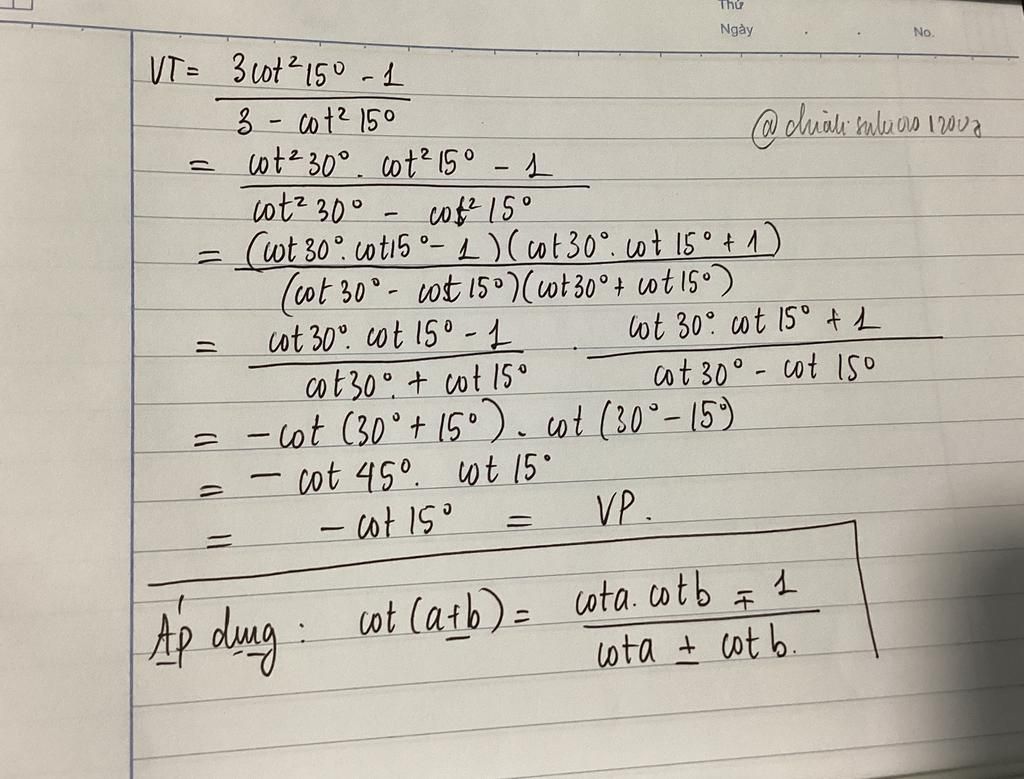 Thứ
Ngày . . No.
VT = (3cot²15° - 1) / (3 - cot²15°)
@
= (cot²30° . cot²15° - 1) / (cot²30° - cot²15°)
= (cot30° . cot15° - 1)(cot30° . cot15° + 1) / (cot30° - cot15°)(cot30° + cot15°)
= (cot30° . cot15° - 1) / (cot30° + cot15°) . (cot30° . cot15° + 1) / (cot30° - cot15°)
= -cot(30° + 15°) . cot(30° - 15°)
= -cot45° . cot15°
= -cot15° = VP.
Áp dụng : cot(a±b) = (cota . cotb ∓ 1) / (cota ± cotb.)